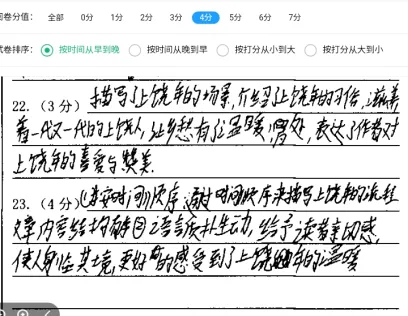 卷分值： 全部 0分 1分 2分 3分 4分 5分 6分 7分
卷排序： 按时间从早到晚 按时间从晚到早 按打分从小到大 按打分从大到小
22.（3分）描写了上饶年的场景,介绍了上饶年的习俗,滋养
着一代又一代的上饶人,让乡愁有了温暖,表达了作者对
上饶年的喜爱与赞美.
23.（4分）①按时间顺序,通过时间顺序来描写上饶年的流程
文章内容结构 ②语言质朴生动,给予读者亲切感,
使人身临其境,更好的感受到了上饶年的温暖